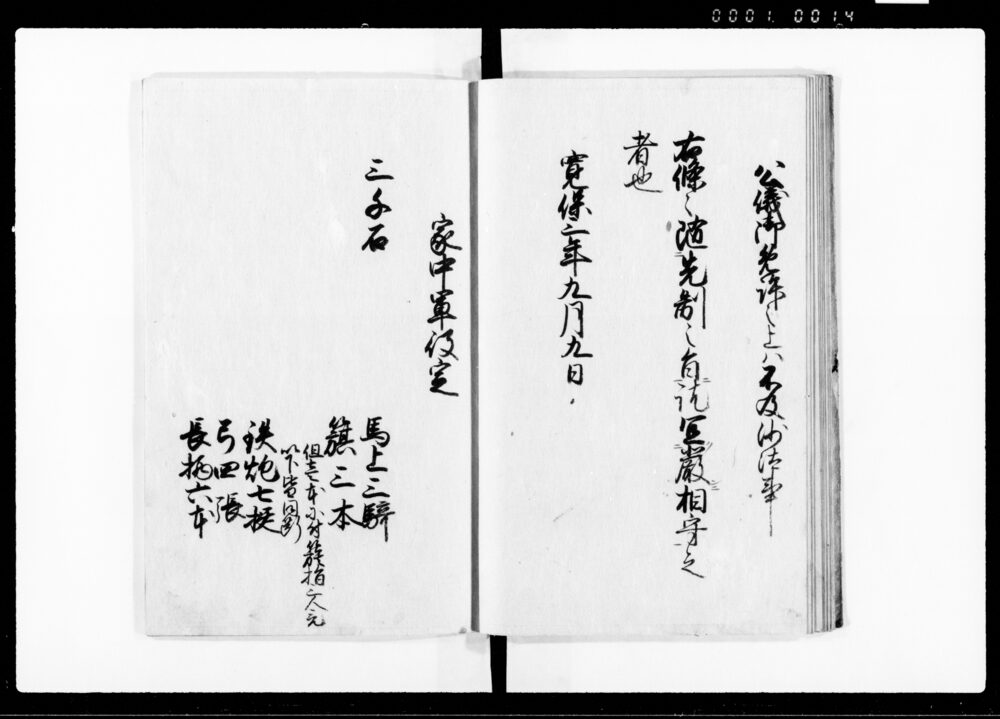 0001 0014
公儀御免許之上ハ不及沙法事
右條々随先制之旨訖宜嚴相守之
者也
寛保二年九月九日
家中軍役定
三千石
馬上三騎
籏三本
但壱本ニ付籏指二人充
以下皆同断
鉄炮七挺
弓四張
長柄六本